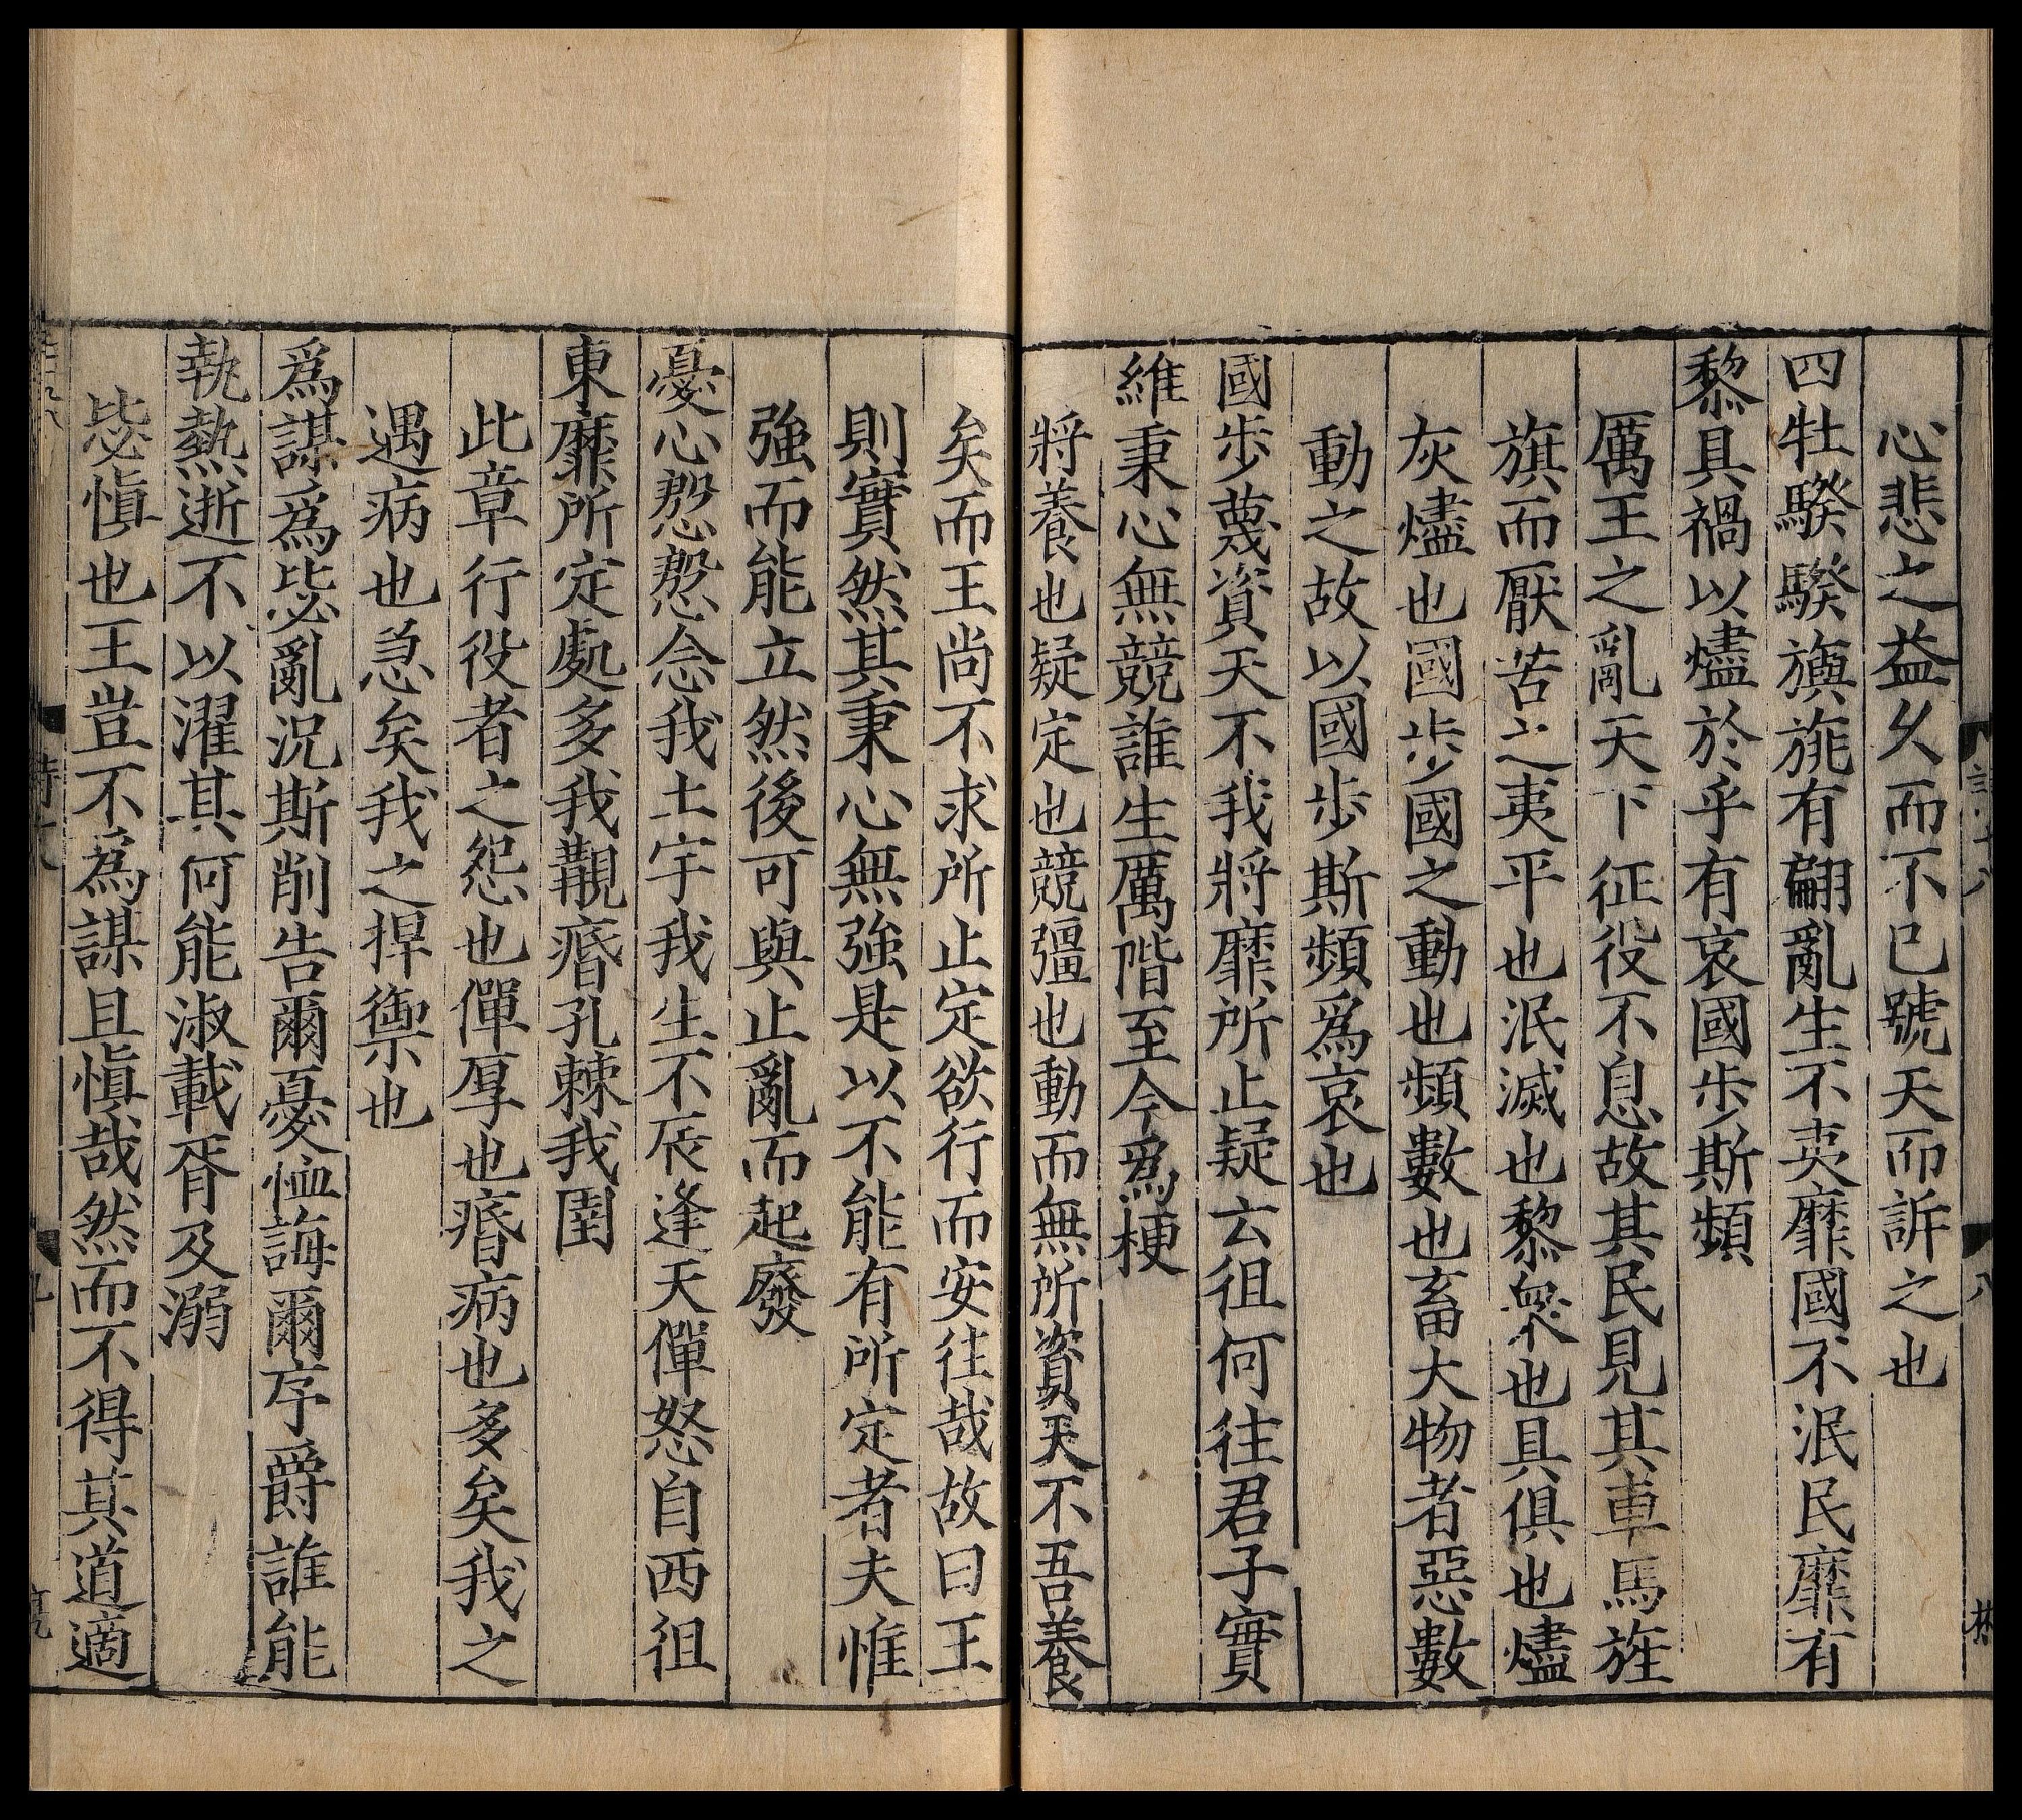 心悲之益乆而不已號天而訴之也
四牡騤騤旟旐有翩亂生不夷靡國不泯民靡有
黎具禍以燼於乎有哀國步斯頻
厲王之亂天下征役不息故其民見其車馬旌
旗而厭苦之夷平也泯滅也黎衆也具俱也燼
灰燼也國步國之動也頻數也畜大物者惡數
動之故以國步斯頻爲哀也
國步蔑資天不我將靡所止疑云徂何往君子實
維秉心無競誰生厲階至今爲梗
將養也疑定也競彊也動而無所資天不吾養
矣而王尚不求所止定欲行而安往哉故曰王
則實然其秉心無強是以不能有所定者夫惟
強而能立然後可與止亂而起廢
憂心慇慇念我土宇我生不辰逢天僤怒自西徂
東靡所定處多我覯痻孔棘我圉
此章行役者之怨也僤厚也痻病也多矣我之
遇病也急矣我之捍禦也
爲謀爲毖亂況斯削告爾憂恤誨爾序爵誰能
執熱逝不以濯其何能淑載胥及溺
毖愼也王豈不爲謀且愼哉然而不得其道適